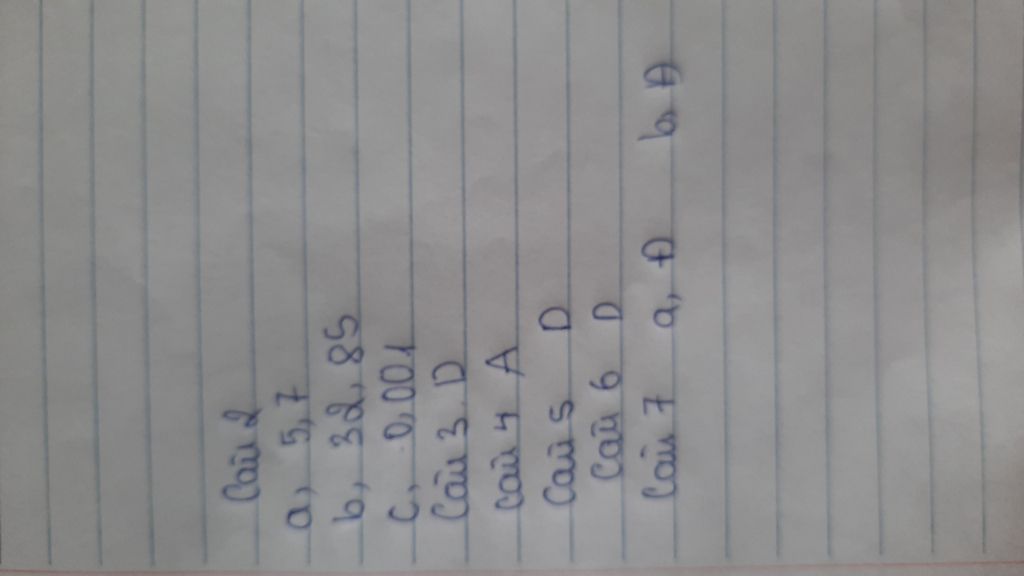 Câu 2
a, 5,7
b, 32,85
c, 0,001
Câu 3 D
Câu 4 A
Câu 5 D
Câu 6 D
Câu 7 a, Đ b, Đ